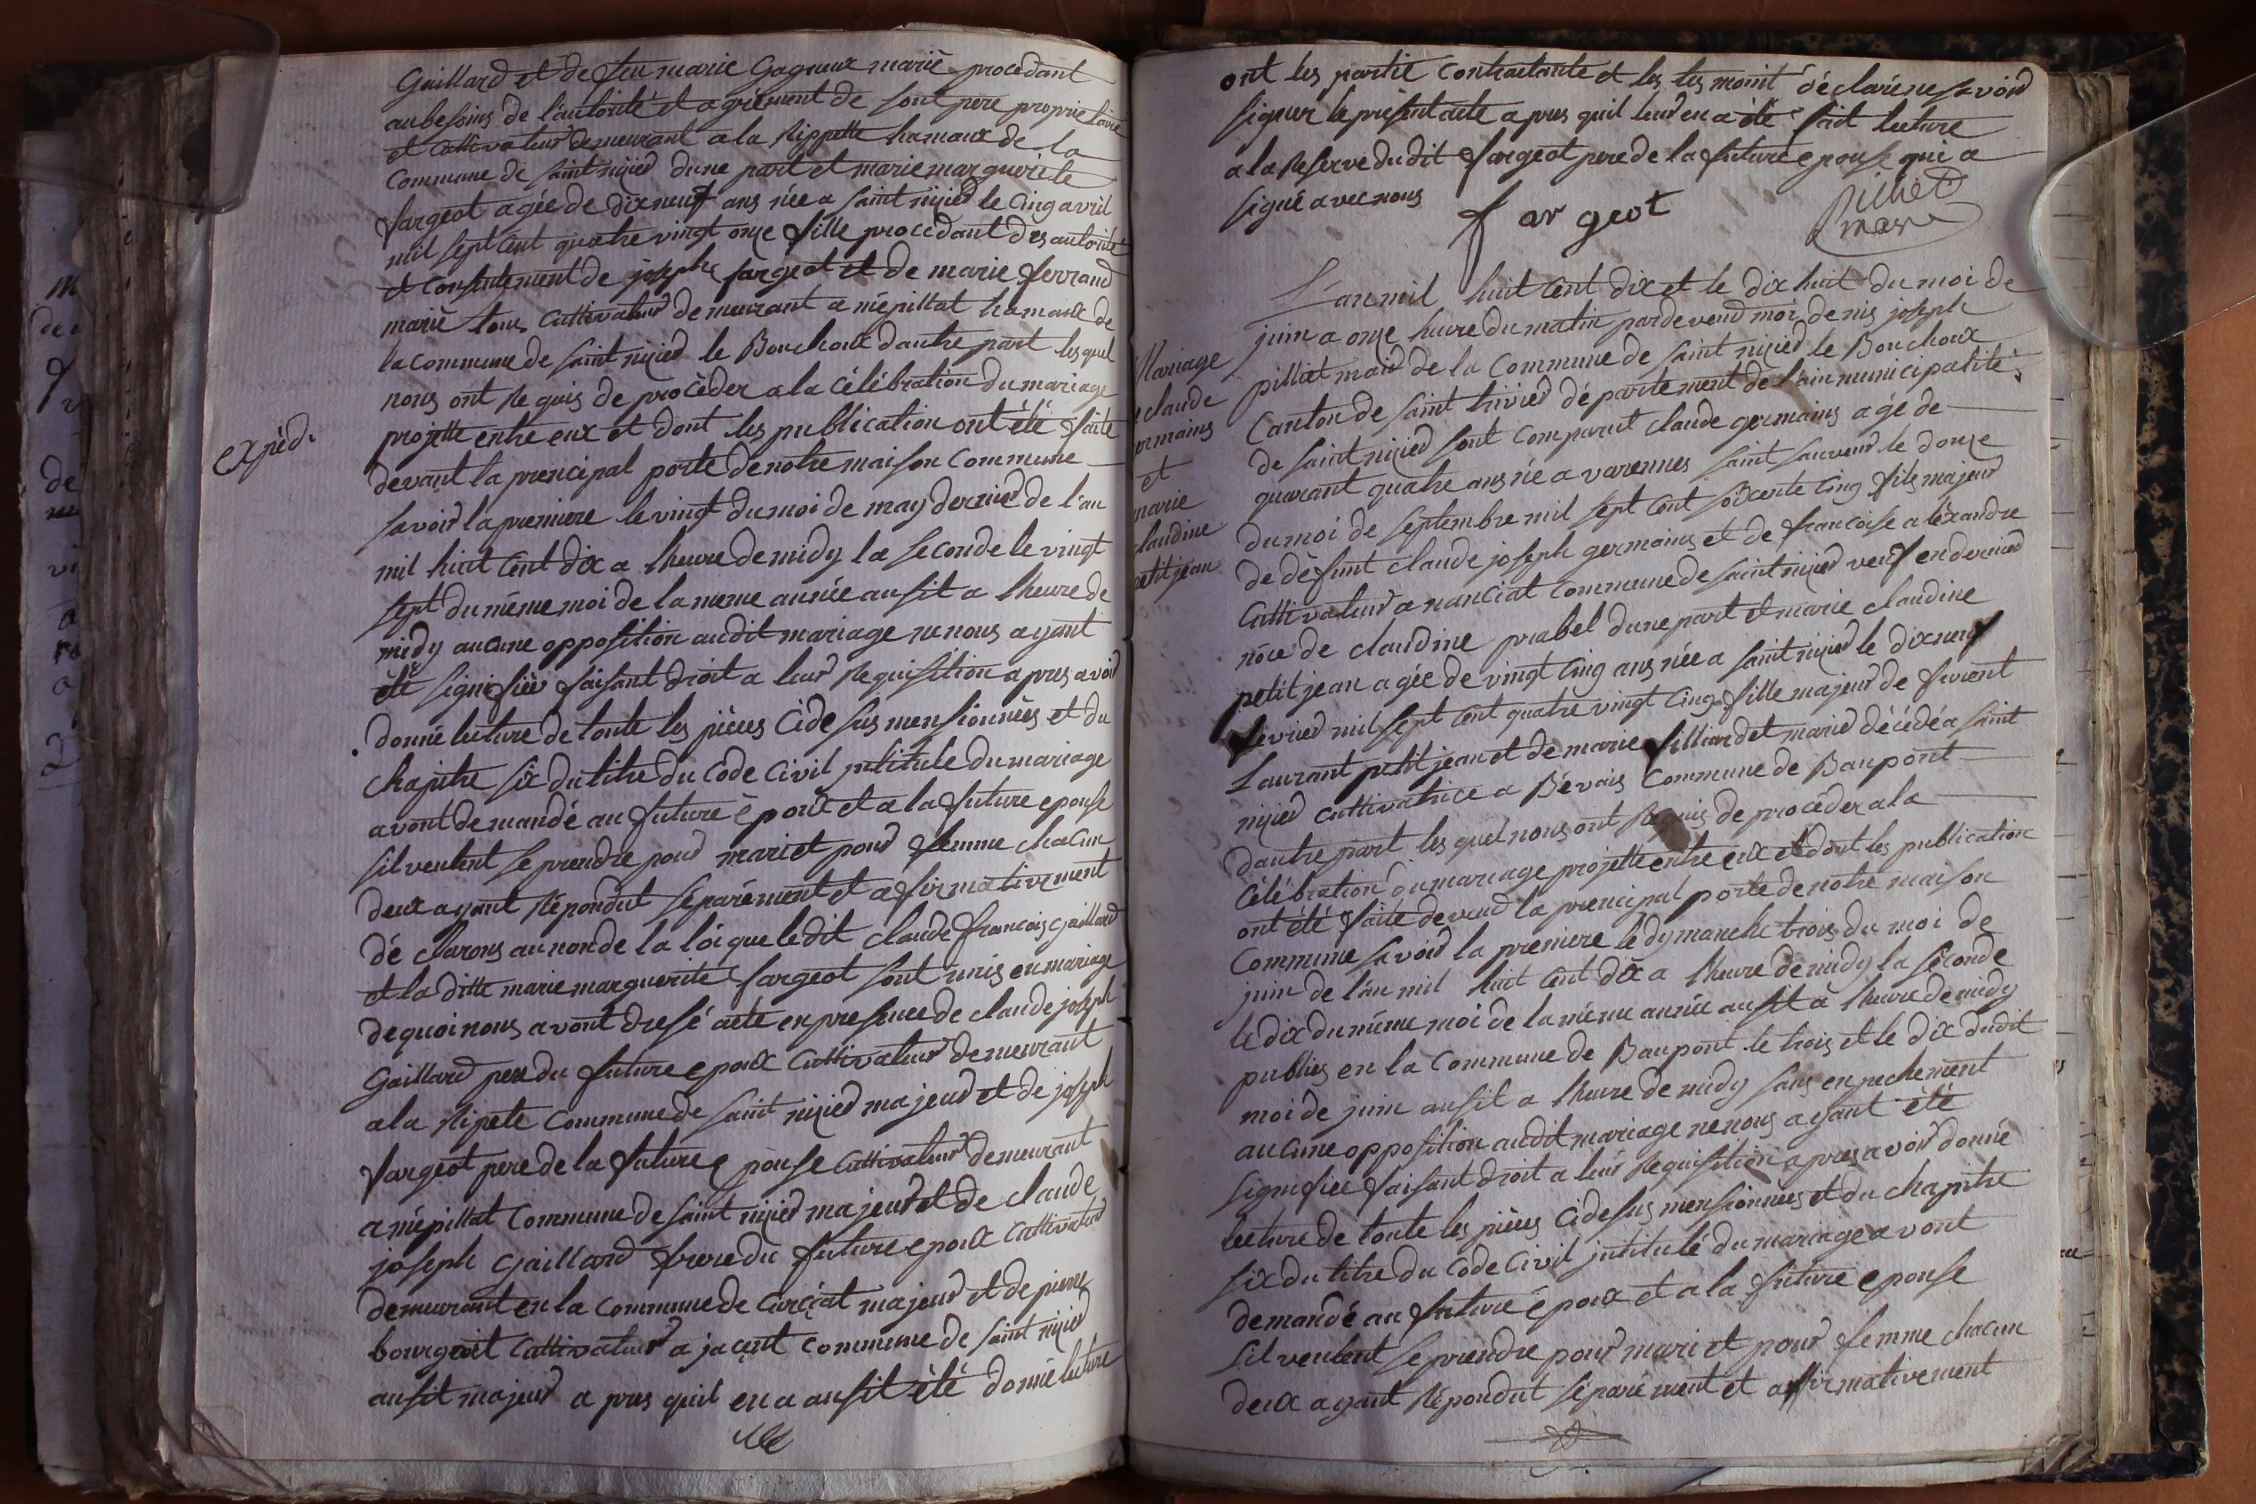 Gaillard et de feu marie Gagneux marié procedant
au besoins de l'autorité et agrement de sont pere proprietaire
et cultivateur demeurant a la Rippette hamaux de la
commune de saint nizied dune part et marie marguerite
fargeot agée de dix neuf ans née a saint nizied le cinq avril
mil sept cent quatre vingt onze fille procedant des autorité
et consentement de joseph fargeot et de marie ferrand
marié tous cultivateur demeurant a mépillat hamaux de
la commune de saint nizied le Bouchoux dautre part les quel
nous ont Requis de procèder a la célébration du mariage
projetté entre eux et dont les publication ont été faite
devant la prencipal porte de notre maison commune
savoir la premiere le vingt du moi de may dernied de l'an
mil huit cent dix a lheure de midy la seconde le vingt
sept du même moi de la meme année ausit a lheure de
midy aucune opposition audit mariage ne nous ayant
été signifiée faisant droit a leur Requisition apres avoir
donné lecture de toute les pièces cide sus mensionnées et du
chapitre six du titre du Code Civil jntitulé du mariage
avont demandé au future époux et a la future epouse
sil veulent se prendre pour mari et pour femme chacun
deux ayant Répondut séparément et afirmativement
déclarons au nom de la loi que ledit claude francois Gaillard
et la ditte marie marguerite fargeot sont unis en mariage
de quoi nous avont dresé acte en presence de claude joseph
Gaillard pere du future epoux cultivateur demeurant
a la Ripete commune de saint nizied majeur et de joseph
fargeot pere de la future epouse cultivateur demeurant
a mépillat commune de saint nizied majeur et de claude
joseph Gaillard frere du future epoux cultivateur
demeurant en la commune de curciat majeur et de pierre
bourgeoit cultivateur a jacent commune de saint nizied
ausit majeur a pres quil en a ausit été donné lecture
expéd.
ont les partie contractante et les tes moint déclaré ne savoir
signer le présent acte apres quil leur en a été fait lecture
a la Reserve dudit fargeot pere de la future epouse qui a
signé avec nous
fargeot
Pilliet
maire
Mariage
claude
ermains
et
marie
claudine
petit jean
L'an mil huit cent dix et le dix huit du moi de
juin a onze heure du matin pardevend moi denis joseph
pilliet maire de la commune de saint nizied le Bouchoux
canton de saint trivied département de l'ain municipalité
de saint nizied sont comparut claude germains agé de
quarant quatre ans née a varennes saint sauveur le douze
du moi de septembre mil sept cent soixente cinq fils majeur
de défunt claude joseph germains et de francoise aléxandre
cultivateur a nanciat commune de saint nizied veuf en dernied
noce de claudine prabel dune part et marie claudine
petit jean agée de vingt cinq ans née a saint nizied le dix neuf
fevried mil sept cent quatre vingt cinq fille majeur de furent
Laurant petit jean et de marie fillion det marié décédé a saint
nizied cultivatrice a Bévais commune de Baupont
dautre part les quel nous ont Requis de procéder a la
célébration du mariage projetté entre eux et dont les publication
ont été faite devend la prencipal porte de notre maison
commune savoir la premiere le dymanche trois du moi de
juin de l'an mil huit cent dix a lheure de midy la séconde
le dix du même moi de la même année ausit a lheure de midy
publies en la commune de Baupont le trois et le dix dudit
moi de juin ausit a lheure de midy sans enpechement
aucune opposition audit mariage ne nous ayant été
signifiée faisant droit a leur Requisition apres avoir donné
lecture de toute les pièces cidesus mensionnées et du chapitre
six du titre du Code Civil jntitulé du mariage avont
demandé au future époux et a la future epouse
sil veulent se prendre pour mari et pour femme chacun
deux ayant Répondut séparément et affirmativement